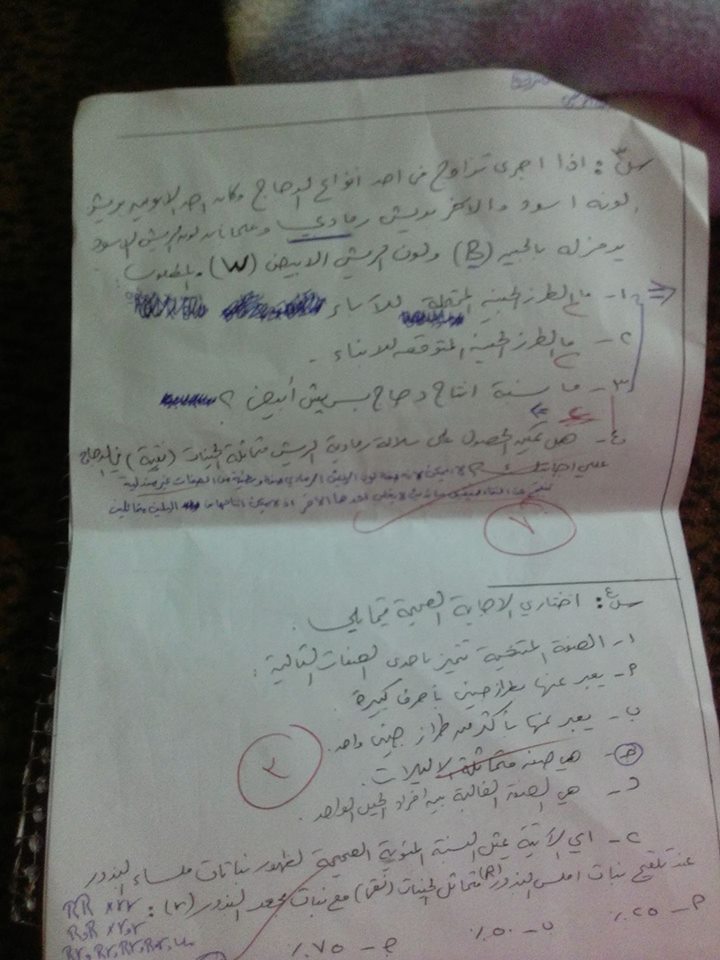 س٣: اذا اجرى تزاوج في احد انواع الدجاج وكان احد الابوين بريش
لونه اسود والاخر بريش رمادي وعلما بان لون الريش الاسود
يرمز له بالجين (B) ولون الريش الابيض (W) والمطلوب:
١- ما الطرز الجينية المحتملة للآباء
٢- ما الطرز الجينية المتوقعة للأبناء.
٣- ما نسبة انتاج دجاج بريش أبيض؟
٤- هل يمكن الحصول على سلالة رمادية الريش متماثلة الجينات (نقية) في الدجاج
لا يمكن لون الريش الرمادي صفة وسطية من الصفات غير مندلية
٧
س٤: اختاري الاجابة الصحيحة فيما يلي.
١- الصفة المتنحية تتميز باحدى الصفات التالية:
أ- يعبر عنها بطراز جيني بأحرف كبيرة
ب- يعبر عنها بأكثر من طراز جيني واحد.
ج- هي صفة متماثلة الاليلات.
د- هي الصفة الغالبة بين أفراد الجيل الواحد.
٣
٢- اي الآتية يمثل النسبة المئوية الصحيحة لظهور نباتات ملساء البذور
عند تلقيح نبات املس البذور (R) متماثل الجينات (نقي) مع نبات مجعد البذور (r):
أ- ٢٥٪ ب- ٥٠٪ ج- ٧٥٪
RR × rr
R,R × r,r
Rr, Rr, Rr, Rr